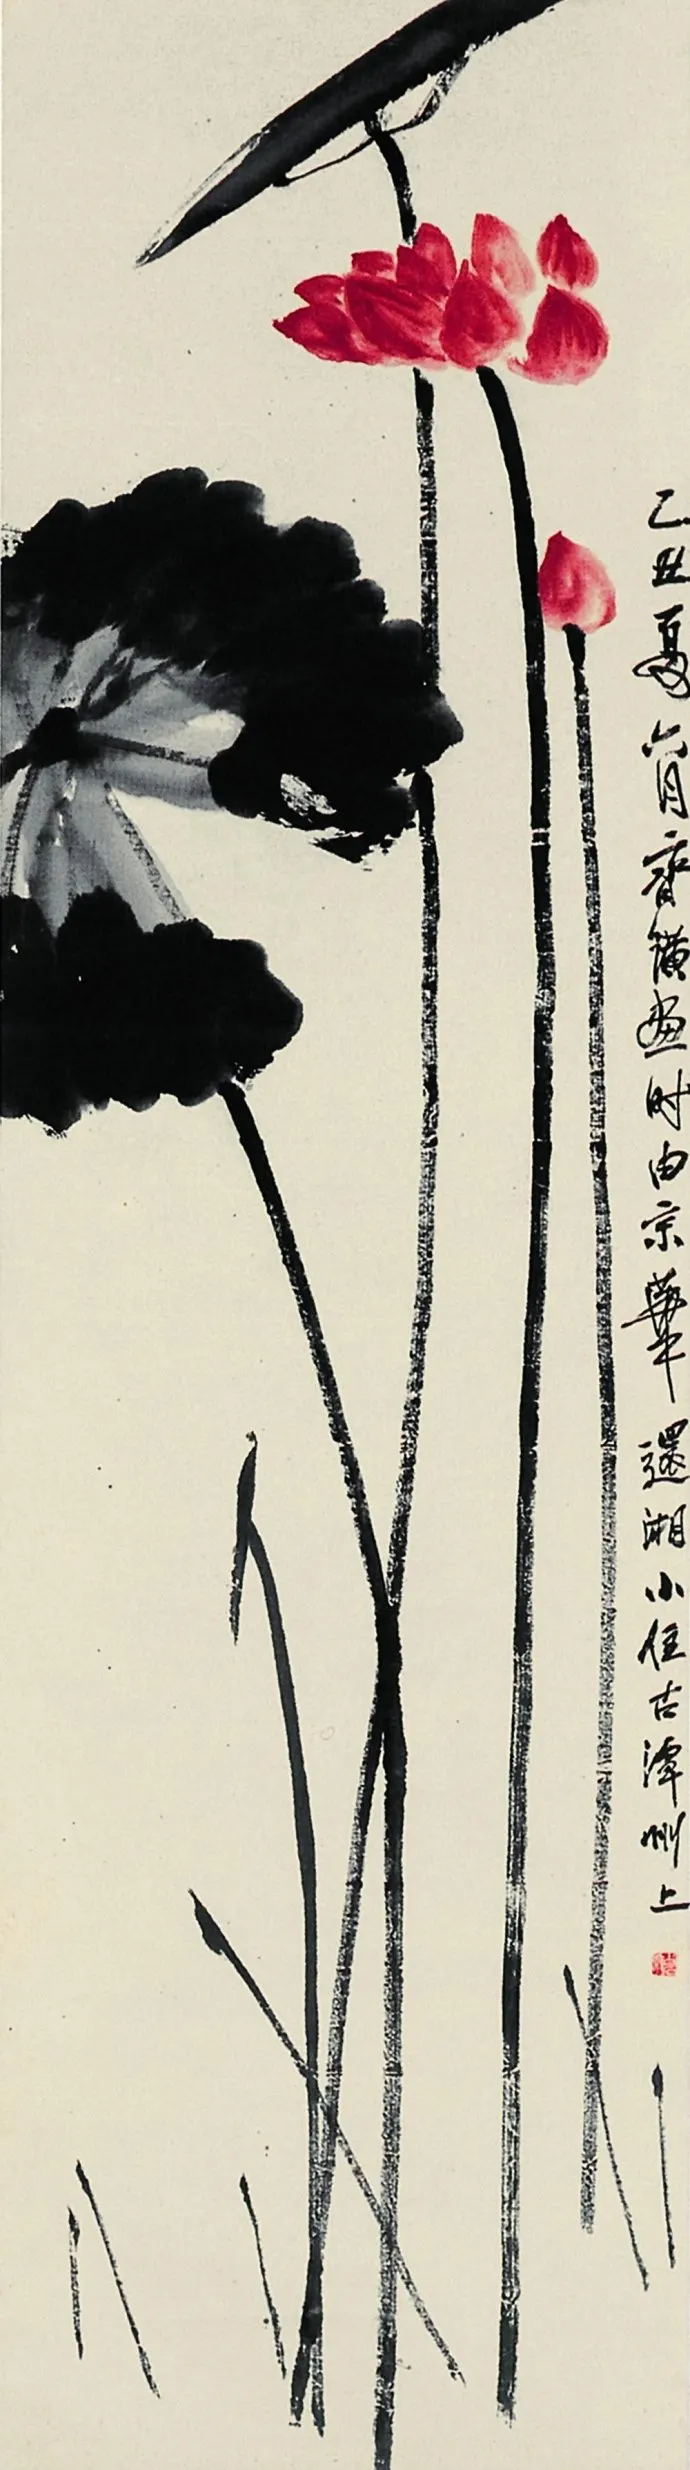 乙丑夏六月齊璜畫时由京華還湘小住古潭州上